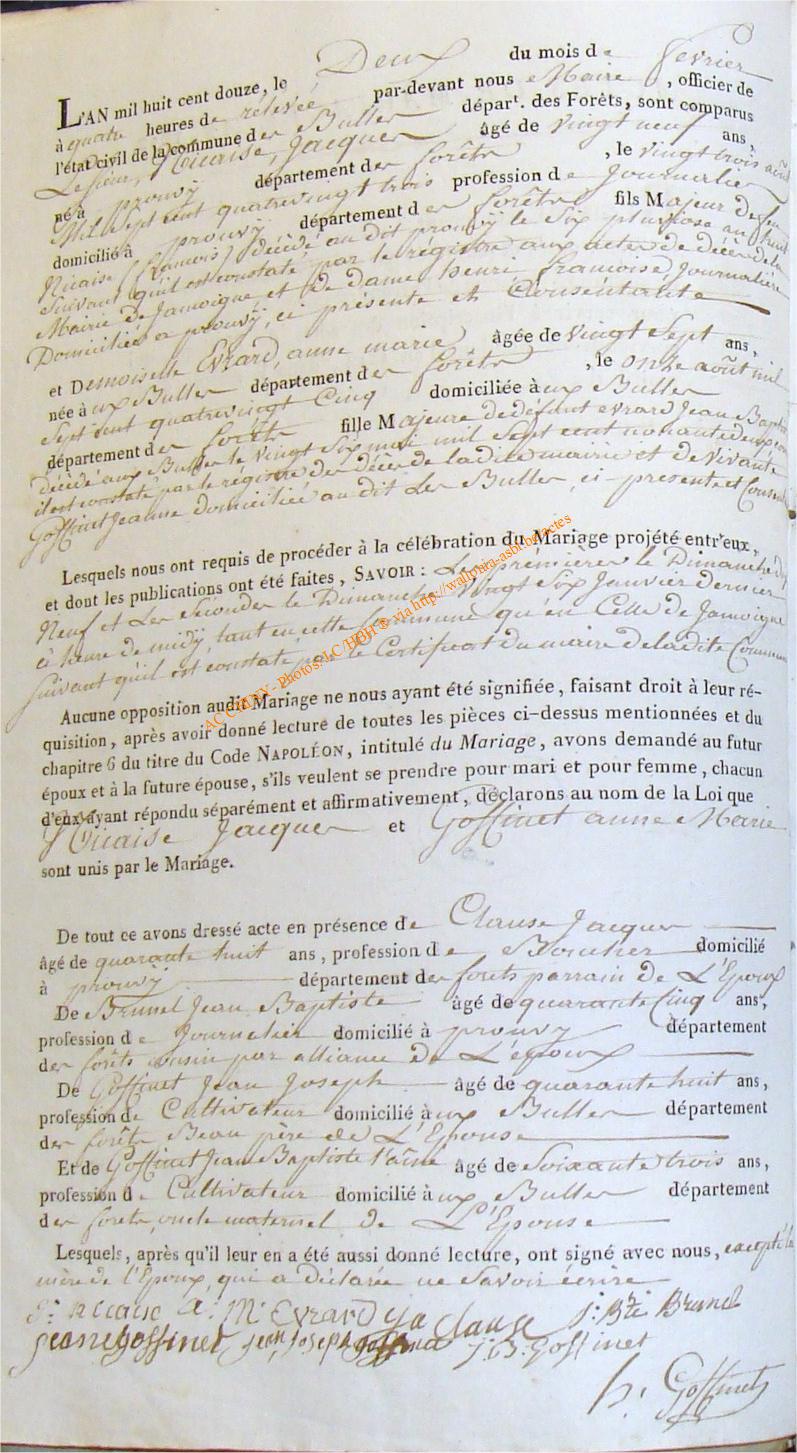 L'AN mil huit cent douze, le Deux du mois de fevrier
à quatre heures de rélevée par-devant nous Maire, officier de
l'état civil de la commune des Bulles dépar^t. des Forêts, sont comparus
Le sieur, Nicaise, Jacques âgé de vingt neuf ans,
né à prouvy département des forêts, le vingt trois août
Mil Sept cent quatrevingt trois profession de Journalier
domicilié à prouvy département des forêts fils Majeur de feu
Nicaise françois, décédé au dit prouvy le six pluviose an huit
suivant qu'il est constaté par le régistre aux actes de décès de la
Mairie de Jamoigne, et de dame henri francoise, Journalière
Domiciliée a prouvy, ci présente et Consentante
et Demoiselle Evrard, anne marie âgée de vingt Sept ans,
née à ux Bulles département des forêts, le onze août mil
Sept cent quatrevingt Cinq domiciliée à ux Bulles
département des forêts fille Majeure de défunt evrard Jean Baptiste
décédé aux Bulles le vingt Six mai mil Sept cent nonante deux
il est constaté par le régistre des décès de la dite mairie et de vivante
Goffinet Jeanne domiciliée au dit Les Bulles, ci-présente et Consentante
Lesquels nous ont requis de procéder à la célébration du Mariage projété entr'eux,
et dont les publications ont été faites, SAVOIR : Les premières le Dimanche dix
Neuf et Les Secondes le Dimanche Vingt Six Janvier dernier
à heure de midy, tant en cette Commune qu'en Celle de Jamoigne
suivant qu'il est constaté par le Certificat du maire de la dite Commune
ACC/HLLV - Photos: LC/HBH ® via http://wallonia-asbl.be/actes
Aucune opposition audit Mariage ne nous ayant été signifiée, faisant droit à leur ré-
quisition, après avoir donné lecture de toutes les pièces ci-dessus mentionnées et du
chapitre 6 du titre du Code NAPOLÉON, intitulé du Mariage, avons demandé au futur
époux et à la future épouse, s'ils veulent se prendre pour mari et pour femme, chacun
d'eux ayant répondu séparément et affirmativement, déclarons au nom de la Loi que
Nicaise Jacques et Goffinet anne Marie
sont unis par le Mariage.
De tout ce avons dressé acte en présence de Clause Jacques
âgé de quarante huit ans, profession de Boucher domicilié
à prouvy département des forets parrain de L'Epoux
De Brunel Jean Baptiste âgé de quarante Cinq ans,
profession de Journalier domicilié à prouvy département
des forêts cousin par alliance de L'époux
De Goffinet Jean Joseph âgé de quarante huit ans,
profession de Cultivateur domicilié à ux Bulles département
des forêts Beau père de L'Epouse
Et de Goffinet Jean Baptiste l'aîné âgé de Soixante trois ans,
profession de Cultivateur domicilié à ux Bulles département
des forets, oncle maternel de L'Epouse
Lesquels, après qu'il leur en a été aussi donné lecture, ont signé avec nous, excepté la
mère de l'Epoux, qui a déclarée ne Savoir écrire
nicaise a: M: EVRARD Clause j: Bte Brunel
jeanne goffinet jean joseph goffinet J:B: Goffinet
h. Goffinet